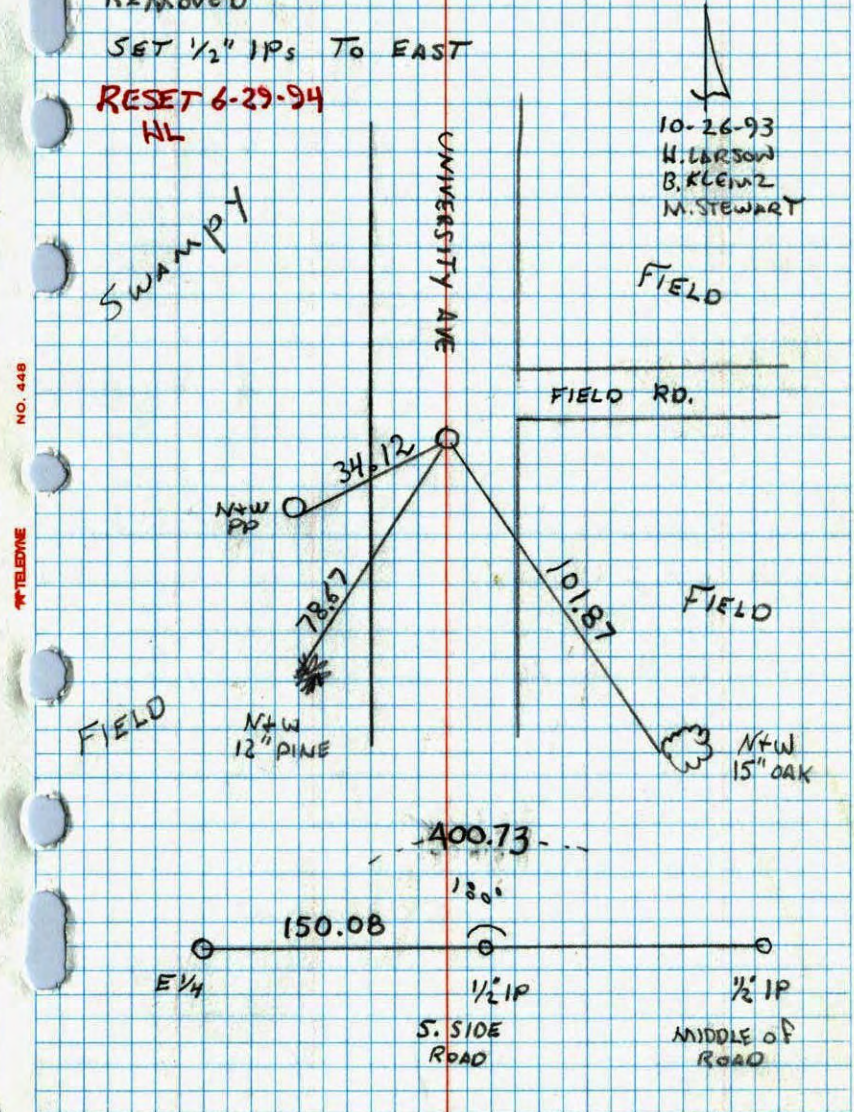 REMOVED
SET 1/2" IPs TO EAST
RESET 6-29-94
HL
10-26-93
H. LARSON
B. KLEMZ
M. STEWART
SWAMPY
UNIVERSITY AVE
FIELD
FIELD RD.
34.12
N+W
PP
78.67
101.87
FIELD
FIELD
N+W
12" PINE
N+W
15" OAK
400.73
180°
150.08
E 1/4
1/2" IP
S. SIDE
ROAD
1/2" IP
MIDDLE OF
ROAD
NO. 448
TELEDYNE